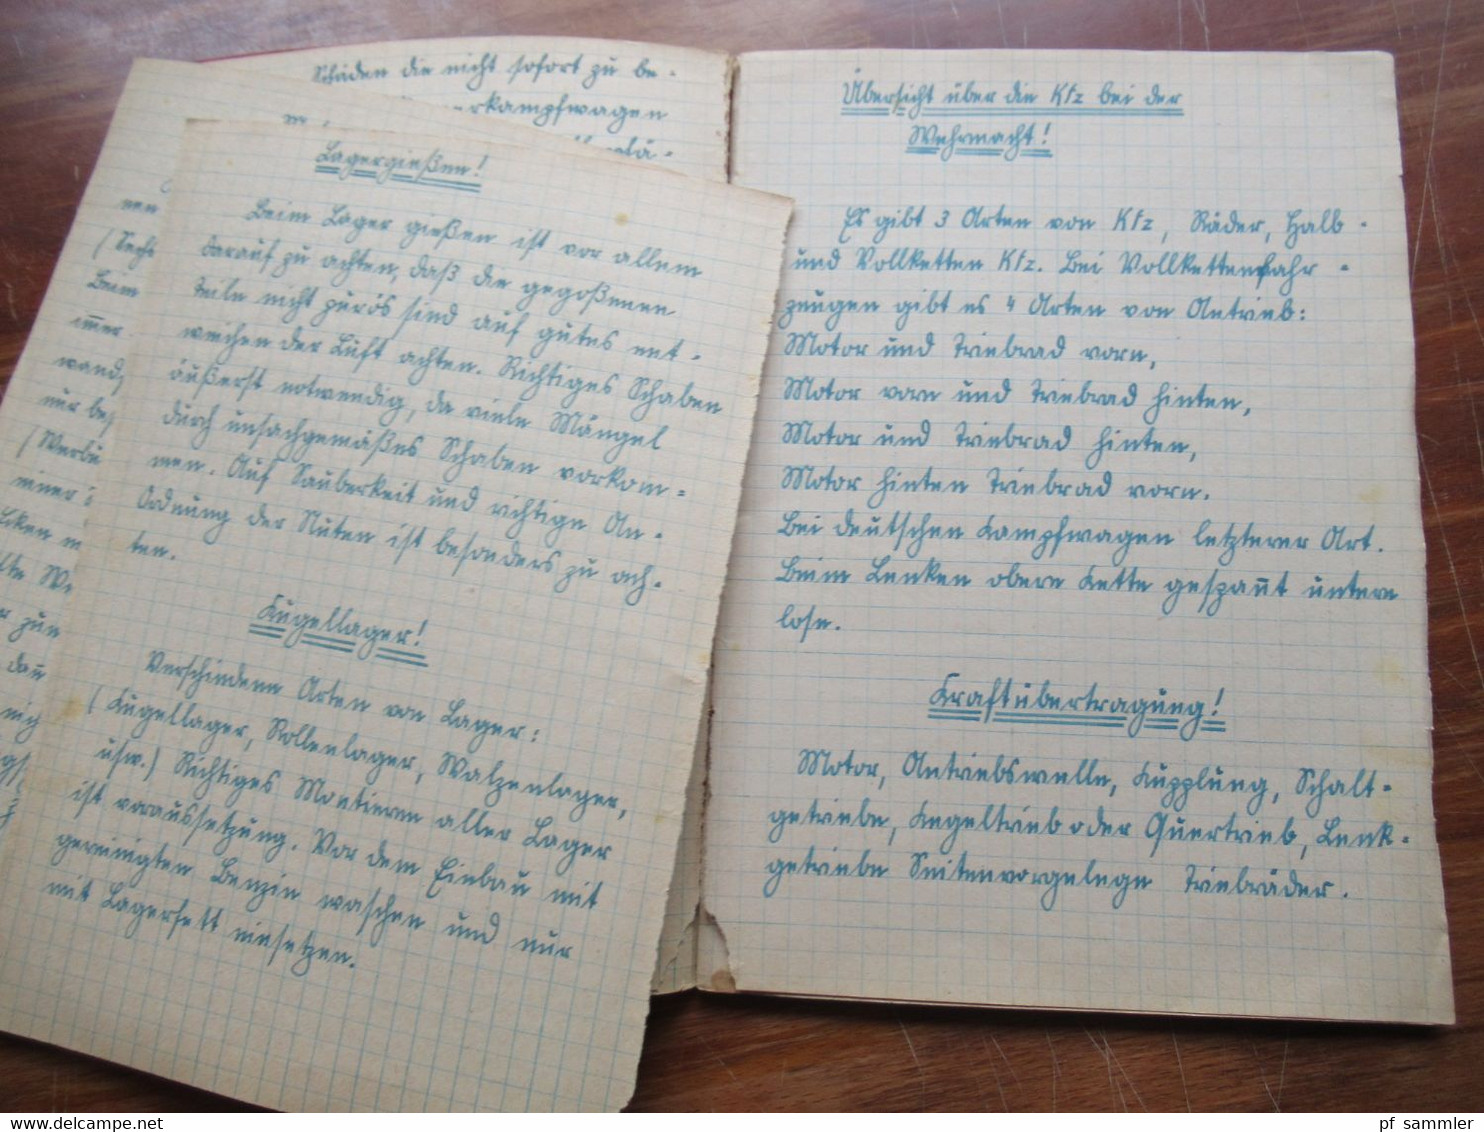 Schäden die nicht sofort zu be-
erkampfwagen
nen
(Sechs
Beim
immer
wand,
nur be
(Werbü
einer
icken
zum
nich
Lagergießen!
Beim Lager gießen ist vor allem
darauf zu achten, daß die gegoßenen
Teile nicht purös sind auf gutes ent-
weichen der Luft achten. Richtiges Schaben
äußerst notwendig, da viele Mängel
durch unsachgemäßes Schaben vorkom-
men. Auf Sauberkeit und richtige An-
Ordnung der Nuten ist besonders zu ach-
ten.
Kugellager!
Verschiedene Arten von Lager:
(Kugellager, Rollenlager, Walzenlager,
usw.) Richtiges Montieren aller Lager
ist voraussetzung. Vor dem Einbau mit
gereinigten Benzin waschen und nur
mit Lagerfett einsetzen.
Übersicht über die Kfz bei der
Wehrmacht!
Es gibt 3 Arten von Kfz, Räder, Halb-
und Vollketten Kfz. Bei Vollkettenfahr-
zeugen gibt es 4 Arten von Antrieb:
Motor und Triebrad vorn,
Motor vorn und Triebrad hinten,
Motor und Triebrad hinten,
Motor hinten Triebrad vorn.
Bei deutschen Kampfwagen letzterer Art.
Beim Lenken obere Kette gespañt untere
lose.
Kraftübertragung!
Motor, Antriebswelle, Kupplung, Schalt-
getriebe, Kegeltrieb oder Quertrieb, Lenk-
getriebe Seitenvorgelege Triebräder.
Delcampe.net
pf sammler